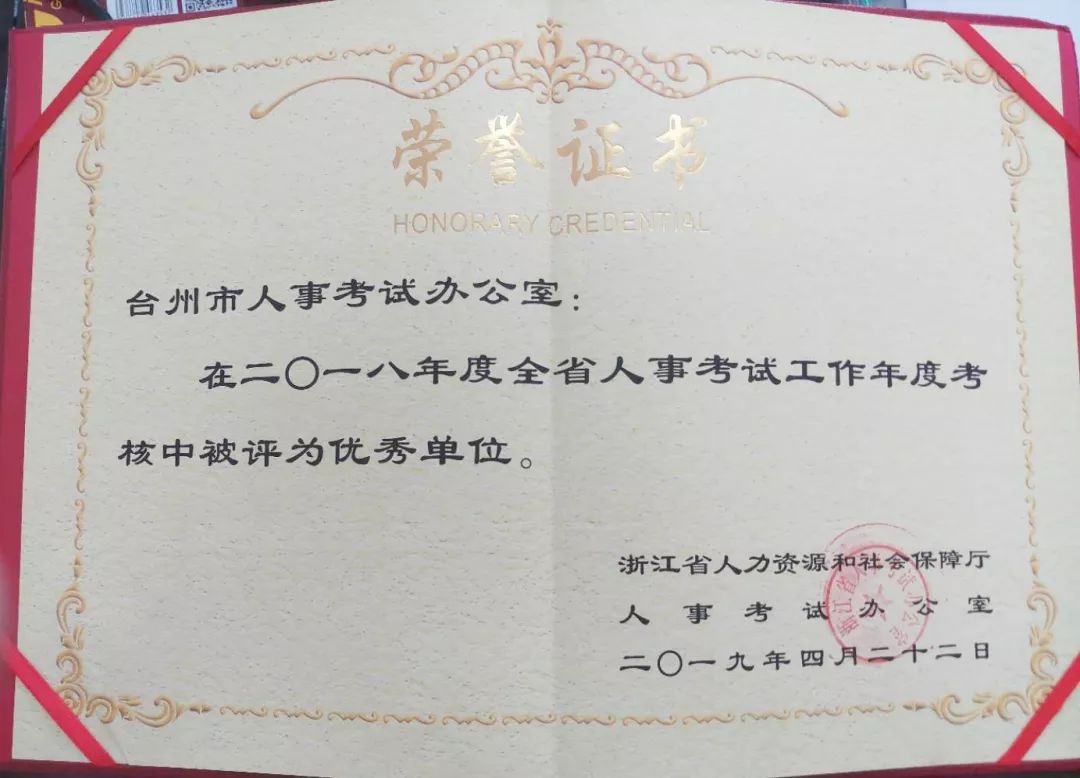 荣誉证书
HONORARY CREDENTIAL
台州市人事考试办公室：
在二〇一八年度全省人事考试工作年度考
核中被评为优秀单位。
浙江省人力资源和社会保障厅
人事考试办公室
二〇一九年四月二十二日